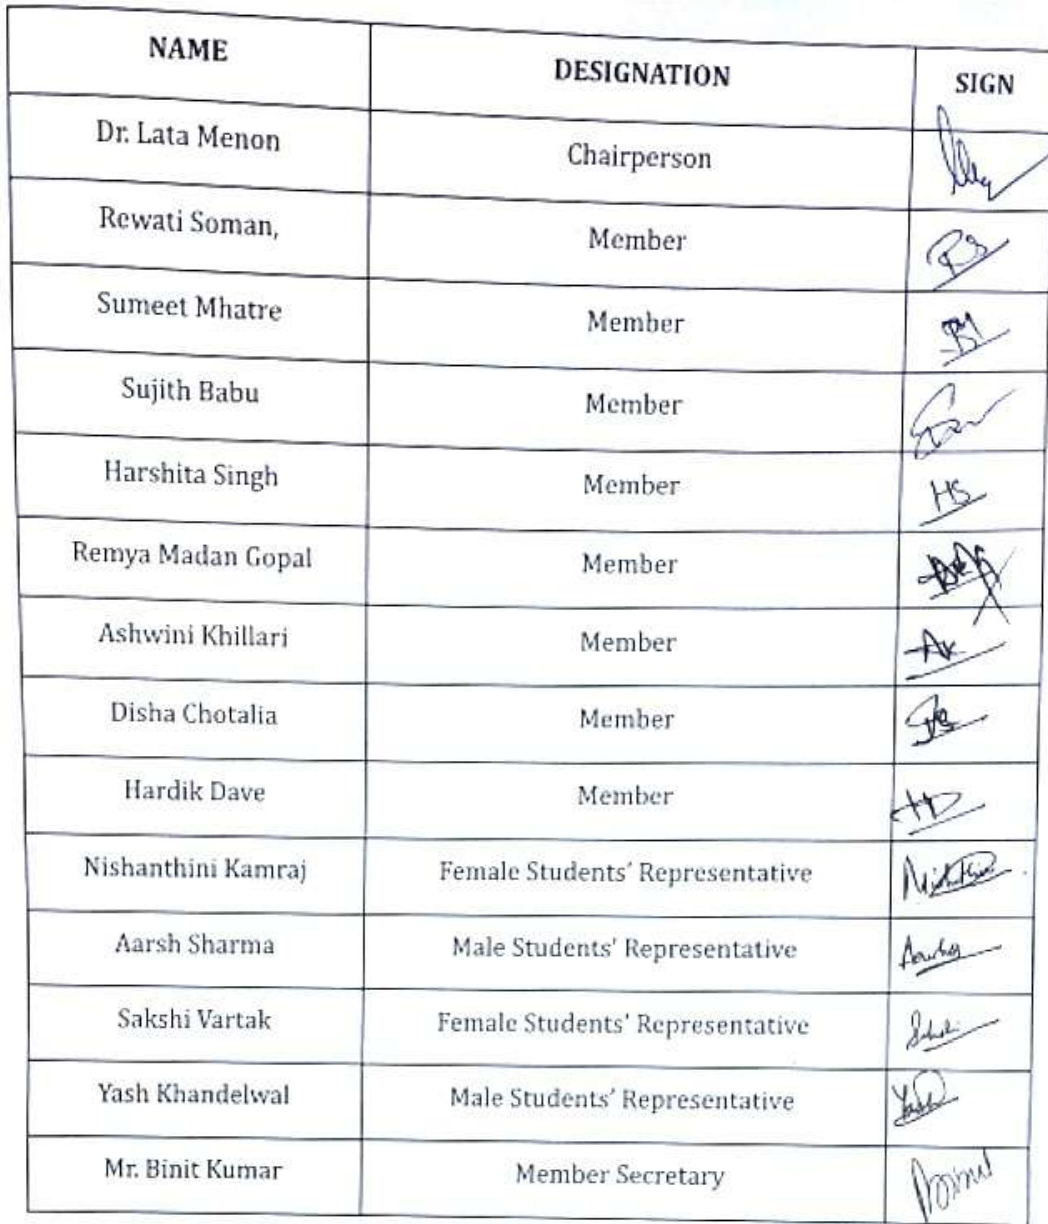 NAME DESIGNATION SIGN
Dr. Lata Menon Chairperson
Rewati Soman, Member
Sumeet Mhatre Member
Sujith Babu Member
Harshita Singh Member HS
Remya Madan Gopal Member
Ashwini Khillari Member AK
Disha Chotalia Member
Hardik Dave Member HD
Nishanthini Kamraj Female Students' Representative
Aarsh Sharma Male Students' Representative
Sakshi Vartak Female Students' Representative
Yash Khandelwal Male Students' Representative
Mr. Binit Kumar Member Secretary